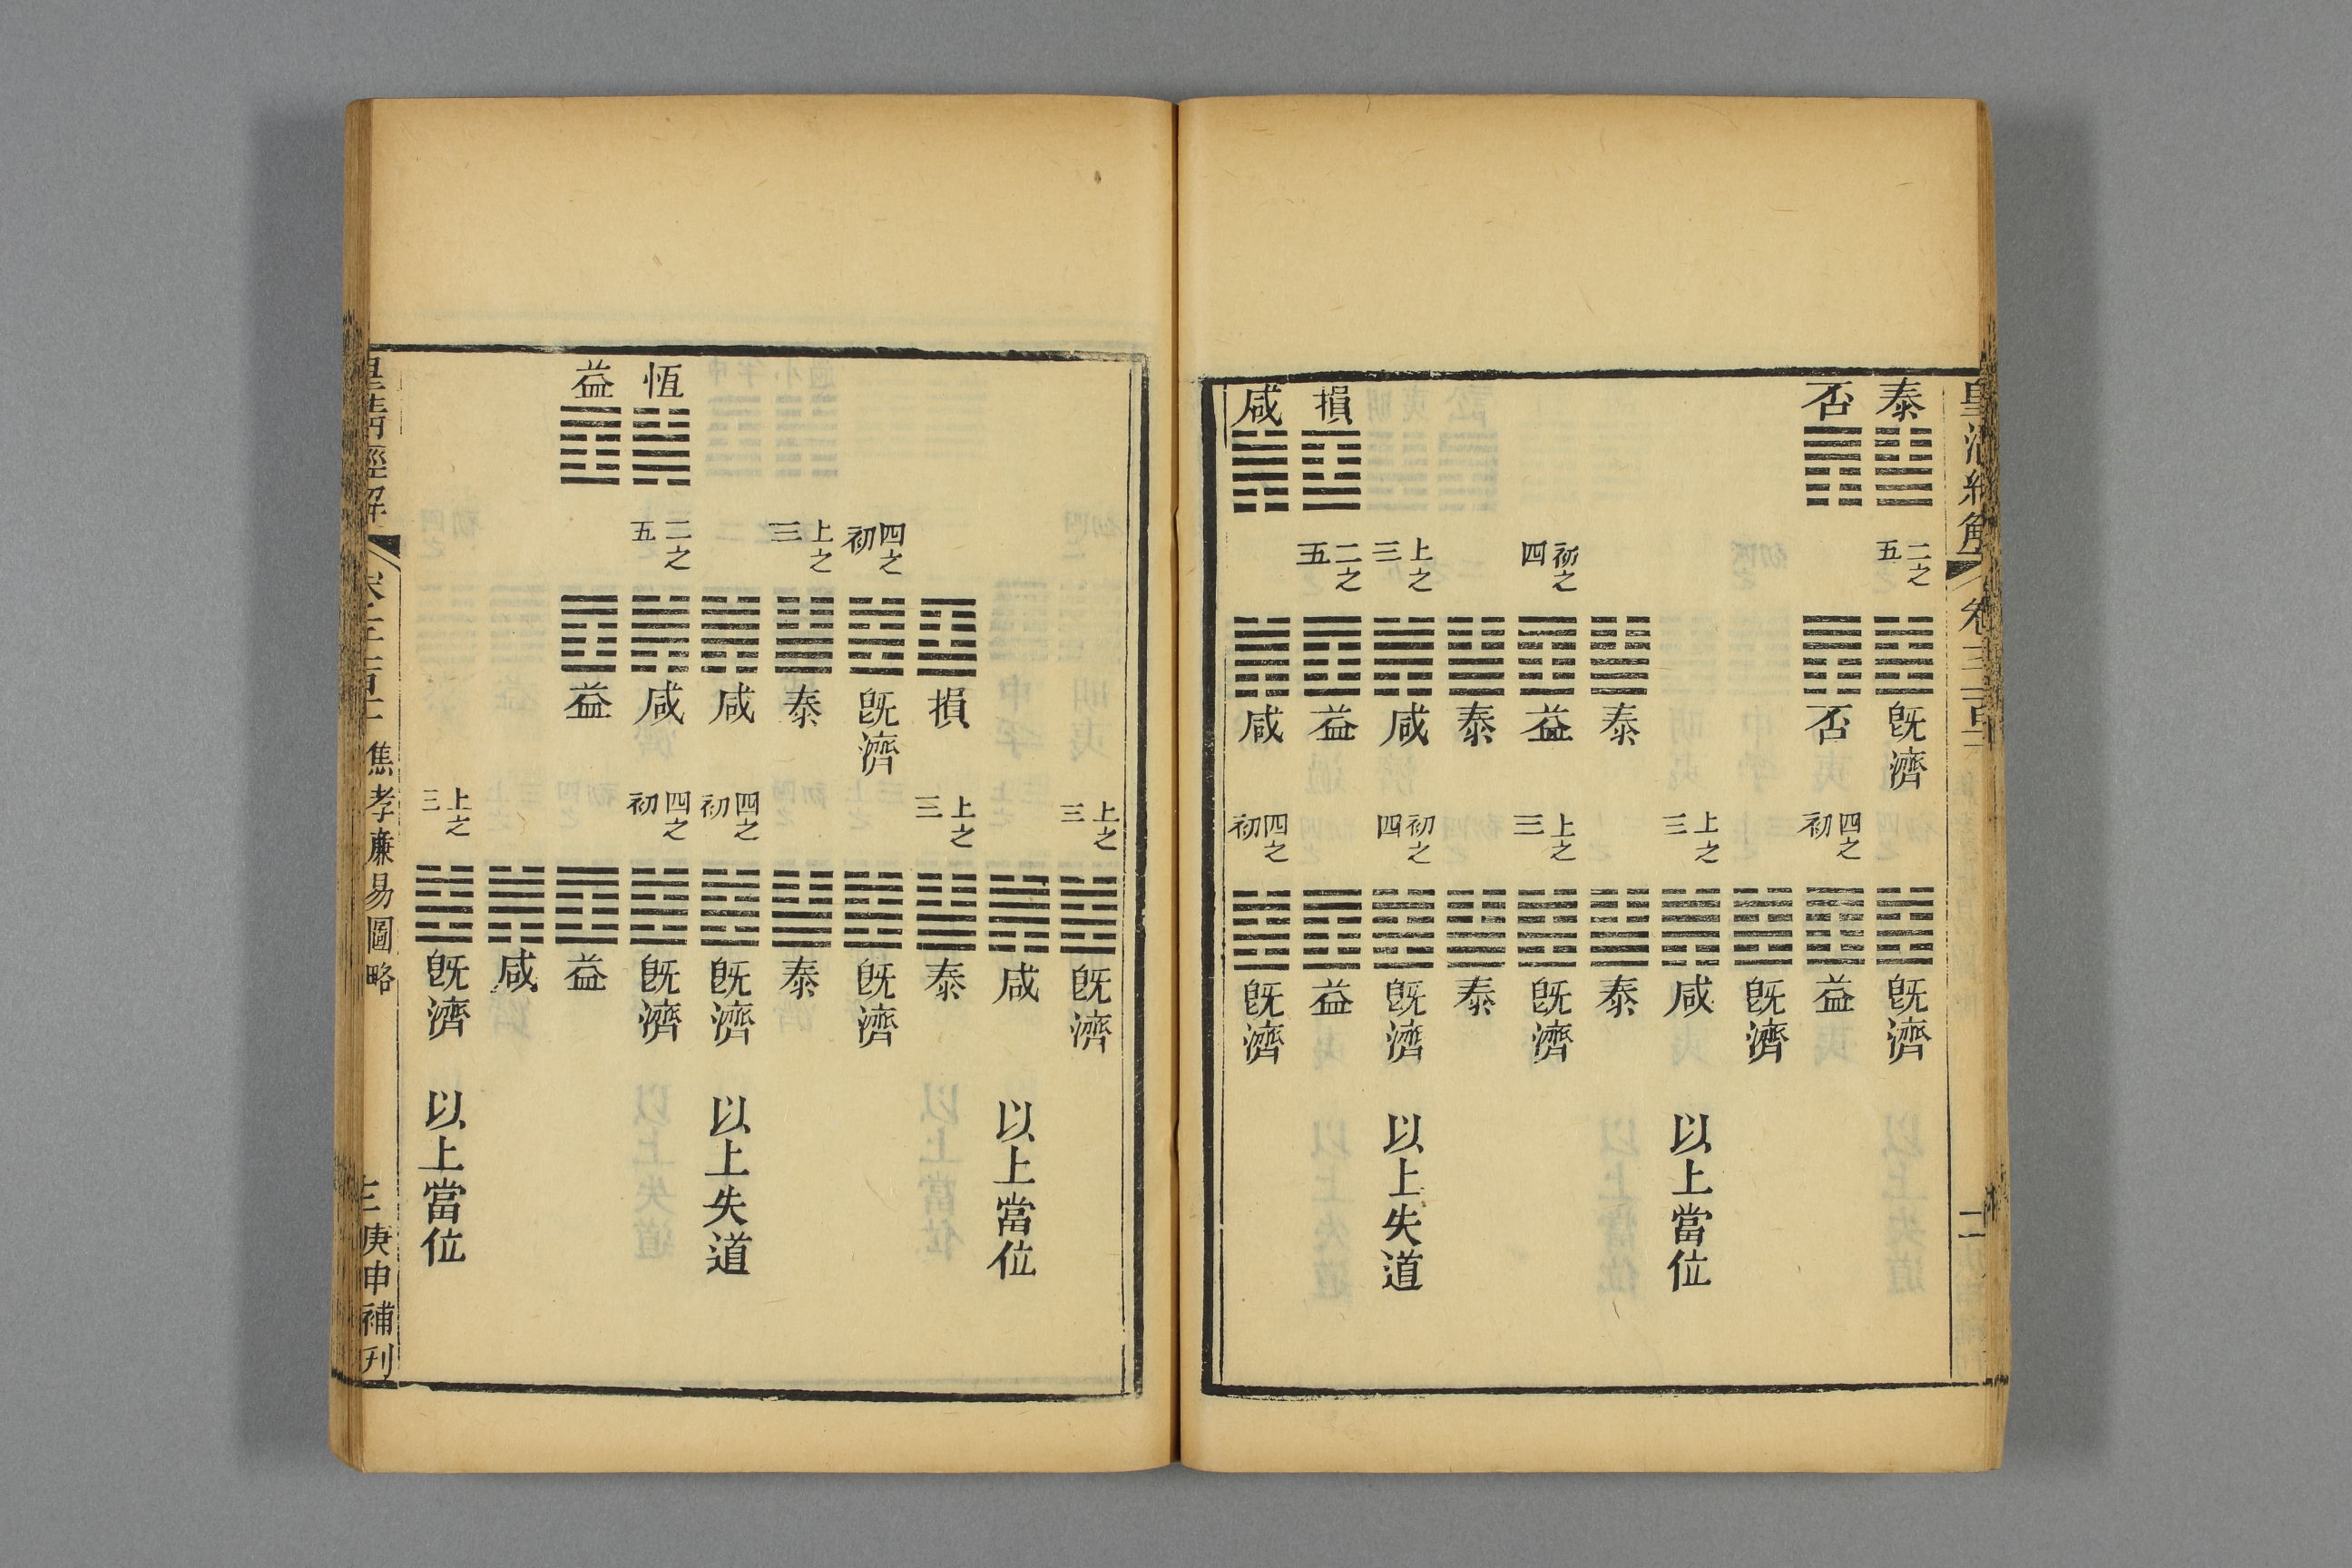 皇清經解
泰 二之五 既濟 既濟
否 否 四之初 益
既濟
上之三 咸 以上當位
泰 泰
初之四 益 上之三 既濟
泰 泰
上之三 咸 初之四 既濟 以上失道
損 二之五 益 益
咸 咸 四之初 既濟
上之三 既濟
咸 以上當位
損 上之三 泰
四之初 既濟 既濟
上之三 泰 泰
咸 四之初 既濟 以上失道
恆 二之五 咸 四之初 既濟
益 益 益
咸
上之三 既濟 以上當位
皇清經解 焦孝廉易圖略 庚申補刊